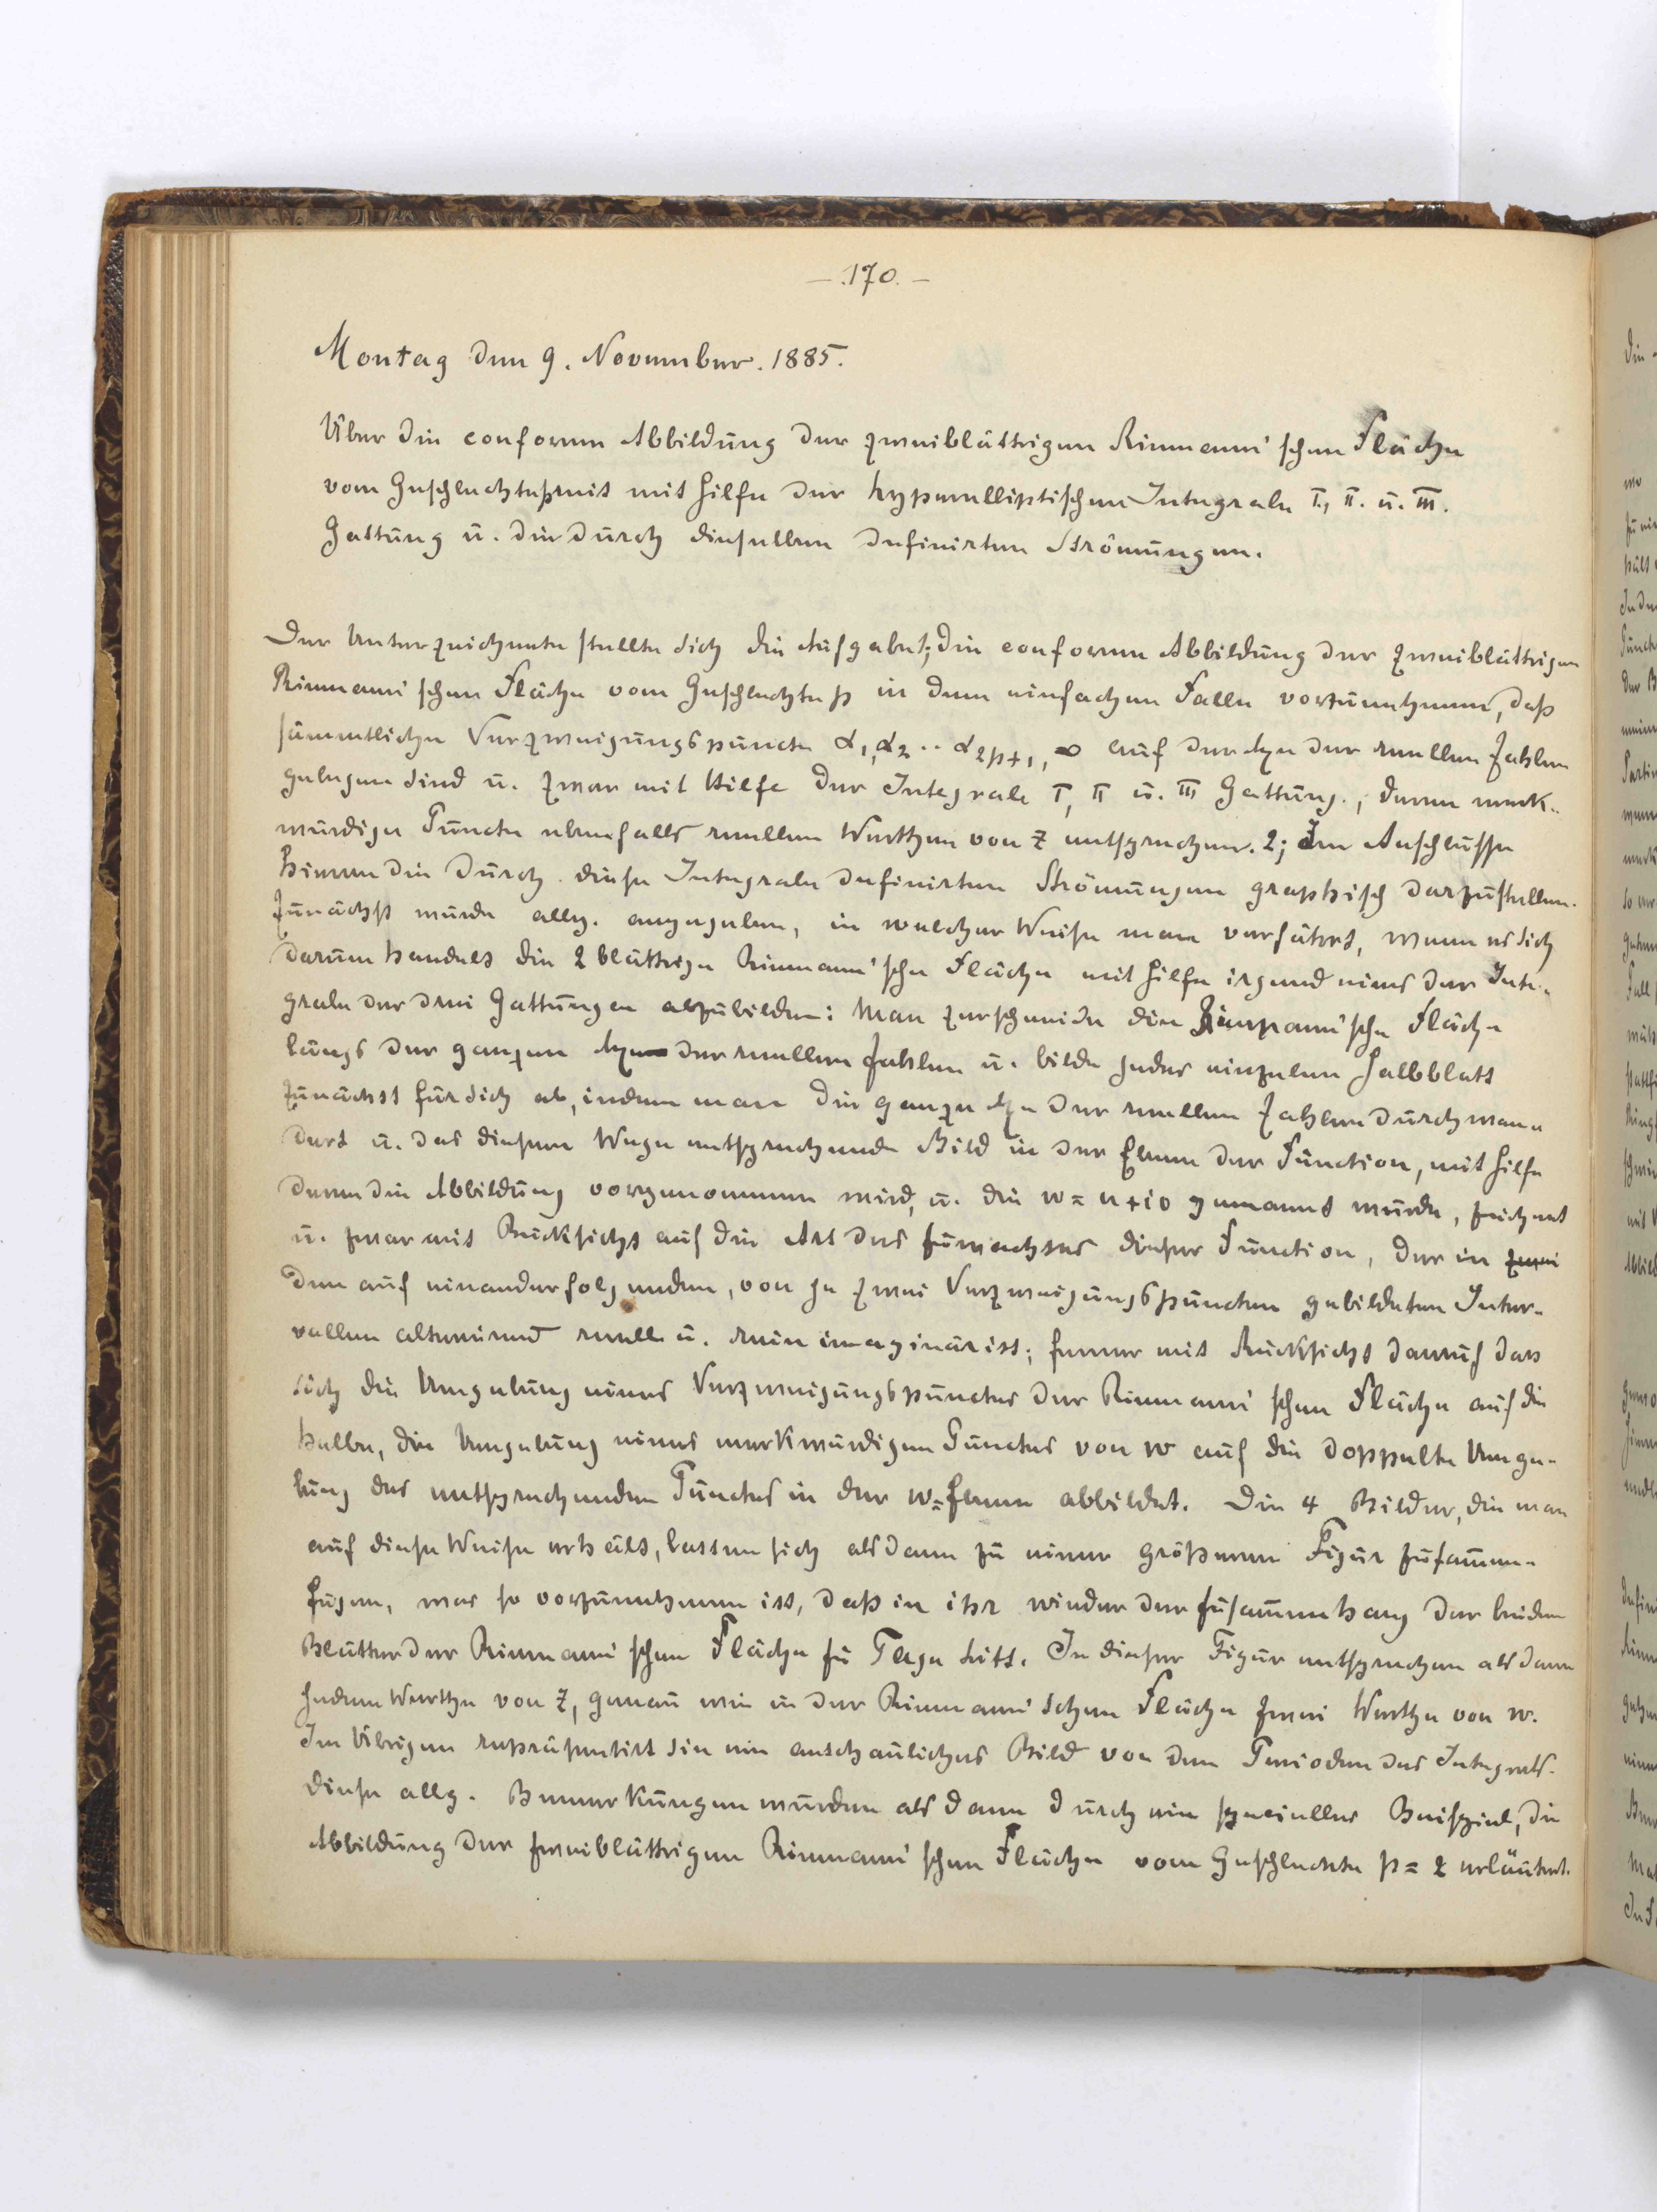 — 170. —
Montag den 9. November. 1885.
Über die conforme Abbildung der zweiblättrigen Riemann'schen Fläche
vom Geschlechte p mit Hilfe der hyperelliptischen Integrale I., II. u. III.
Gattung u. die durch dieselben definirten Strömungen.
Der Unterzeichnete stellte sich die Aufgabe 1; die conforme Abbildung der zweiblättrigen
Riemann'schen Fläche vom Geschlechte p in dem einfachen Falle vorzunehmen, daß
sämmtliche Verzweigungspuncte α1, α2 .. α2p+1, ∞ auf der Axe der reellen Zahlen
gelegen sind u. zwar mit Hilfe der Integrale I, II u. III Gattung, deren merk-
würdige Puncte ebenfalls reellen Werthen von z entsprechen. 2; Im Anschlusse
hieran die durch diese Integrale definirten Strömungen graphisch darzustellen.
Zunächst wurde allg. angegeben, in welcher Weise man verfährt, wenn es sich
darum handelt die 2 blättrige Riemann'sche Fläche mit Hilfe irgend eines der Inte-
grale der drei Gattungen abzubilden: Man zerschneide die Riemann'sche Fläche
längs der ganzen Axe der reellen Zahlen u. bilde jedes einzelne Halbblatt
zunächst für sich ab, indem man die ganze Axe der reellen Zahlen durchwan-
dert u. das diesem Wege entsprechende Bild in der Ebene der Function, mit Hilfe
deren die Abbildung vorgenommen wird, u. die w = u + iv genannt wurde, zeichnet
u. zwar mit Rücksicht auf die Art des Zuwachses dieser Function, der in zwei
den auf einanderfolgenden, von je zwei Verzweigungspuncten gebildeten Inter-
vallen alternirend reell u. rein imaginär ist; ferner mit Rücksicht darauf dass
sich die Umgebung eines Verzweigungspunctes der Riemann'schen Fläche auf die
halbe, die Umgebung eines merkwürdigen Punctes von w auf die doppelte Umge-
bung des entsprechenden Punctes in der w=Ebene abbildet. Die 4 Bilder, die man
auf diese Weise erhält, lassen sich alsdann zu einer größeren Figur zusammen-
fügen, was so vorzunehmen ist, daß in ihr wieder der Zusammenhang der beiden
Blätter der Riemann'schen Fläche zu Tage tritt. In dieser Figur entsprechen alsdann
jedem Werthe von z, genau wie in der Riemann'schen Fläche zwei Werthe von w.
Im Übrigen repräsentirt sie ein anschauliches Bild von den Perioden des Integrals.
Diese allg. Bemerkungen wurden alsdann durch ein specielles Beispiel, die
Abbildung der zweiblättrigen Riemann'schen Fläche vom Geschlechte p = 2 erläutert.